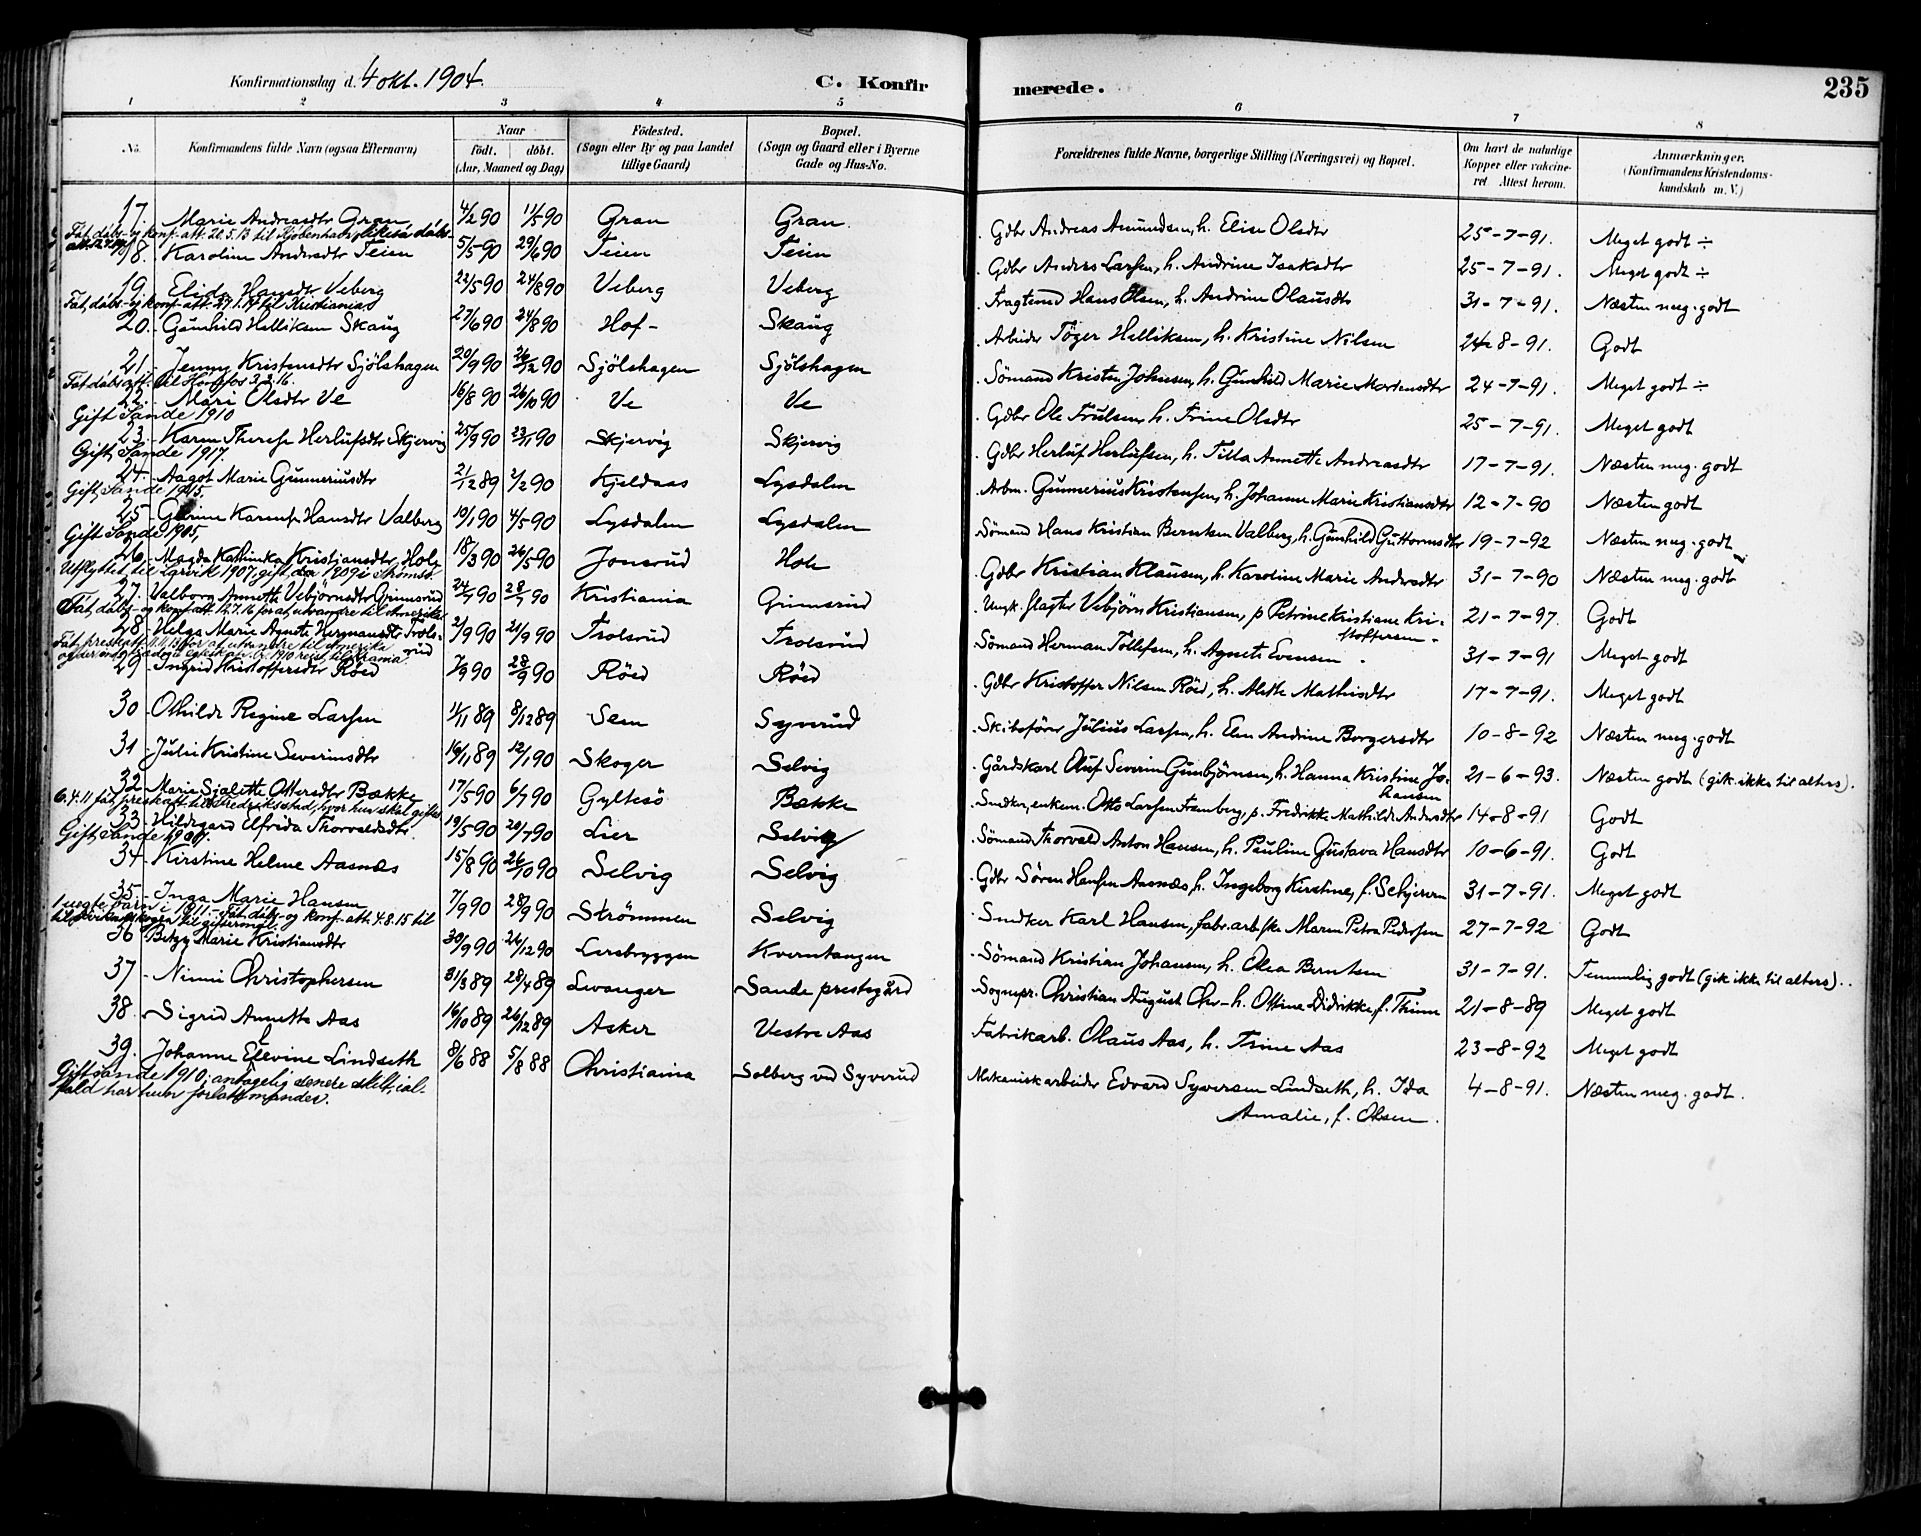 Konfirmationsdag d. 4 okt. 1904.
C. Konfirmerede.
235
1 2 3 4 5 6 7 8
No. Konfirmandens fulde Navn (ogsaa Efternavn) Naar födt. döbt. (Aar, Maaned og Dag) Födested. (Sogn eller By og paa Landet tillige Gaard) Bopæl. (Sogn og Gaard eller i Byerne Gade og Hus-No. Forældrenes fulde Navne, borgerlige Stilling (Næringsvei) og Bopæl. Om havt de naturlige Kopper eller vakcineret Attest herom. Anmærkninger. (Konfirmandens Kristendomskundskab m. V.)
17. Marie Andreasdtr Gran 4/2 90 11/5 90 Gran Gran. Gdbr Andreas Amundsen, h. Elise Olsdtr 25-7-91. Meget godt ÷
Fåt dåbs- og konf. att. 20.5.13 til Kjöbenhavn
18. Karoline Andersdtr Teien 5/5 90 29/6 90 Teien Teien Gdbr Anders Larsen, h. Andrine Isaksdtr 25-7-91. Meget godt ÷
19. Elida Hansdtr Veberg 22/5 90 24/8 90 Veberg Veberg Fragtemd Hans Olsen, h. Andrine Olausdtr 31-7-91. Næsten meg. godt
Fåt dåbs- og konf. att. til Kristiania
20. Gunhild Helliksen Skaug 27/6 90 24/8 90 Hof- Skaug Arbeider Töger Helliksen, h. Kristine Nilsen 24-8-91. Godt
21. Jenny Kristensdtr Sjölshagen 20/9 90 26/12 90 Sjölshagen Sjölshagen Sömand Kristen Johnsen, h. Gunhild Marie Mortensdtr 24-7-91. Meget godt ÷
Fåt dåbsatt. til Hönefos 3.2.16.
22. Mari Olsdtr Ve 16/8 90 26/10 90 Ve Ve Gdbr Ole Trulsen, h. Trine Olsdtr 25-7-91. Meget godt
Gift Sande 1910
23. Karen Therese Herlufsdtr Skjervig 25/9 90 23/11 90 Skjervig Skjervig Gdbr Herluf Herlufsen, h. Tilla Annette Andreasdtr 17-7-91. Næsten meg. godt
Gift, Sande 1917.
24. Aagot Marie Gunneriusdtr 21/12 89 2/2 90 Kjeldaas Lysdalen Arbm. Gunnerius Kristensen, h. Johanne Marie Kristiansdtr 12-7-90 Næsten godt
Gift, Sande 1915.
25 Karense Hansdtr Valberg 10/1 90 4/5 90 Lysdalen Lysdalen Sömand Hans Kristian Berntsen Valberg, h. Gunhild Guttormsdtr 19-7-92 Næsten meg. godt
Gift Sande 1905,
26. Magda Kathinka Kristiansdtr Holz 18/3 90 26/5 90 Jonsrud Holz Gdbr Kristian Klausen, h. Karoline Marie Andersdtr 31-7-90 Næsten meg. godt
Utflyttet til Larvik 1907, gift da 1909 i Strömsö.
27. Valborg Annette Vebjörnsdtr Grimsrud 24/7 90 28/7 90 Kristiania Grimsrud Ungk. slagter Vebjörn Kristiansen, p Petrine Kristiane Kristoffersen - 21-7-97. Godt
Fåt, dåbs- og konf. att. 12.7.16 for at utvandre til Amerika
28. Helga Marie Agnete Hermansdtr Trolsrud 2/9 90 21/9 90 Trolsrud Trolsrud Sömand Herman Tollefsen, h. Agnete Evensen 31-7-91 Meget godt
29 Ingrid Kristoffersdtr Röed 7/9 90 28/9 90 Röed Röed Gdbr Kristoffer Nilsen Röed, h. Alette Mathisdtr 17-7-91. Meget godt
30 Othilde Regine Larsen 11/11 89 8/12 89 Sem Syverud Skibsförer Julius Larsen, h. Elen Andrine Borgersdtr 10-8-92 Næsten meg. godt
31 Julie Kristine Severinsdtr 16/11 89 12/1 90 Skoger Selvig Gårdskarl Oluf Severin Gunbjörnsen, h. Hanna Kristine Johansen 21-6-93. Næsten godt (gik ikke til alters).
32 Marie Sjalotte Ottersdtr Bække 17/5 90 6/7 90 Gyltesö Bække Snedker, enkem. Otto Larsen Framberg, p. Fredrikke Mathilde Andersdtr 14-8-91 Godt
6.4.11 fåt presteatt til Fredriksstad, hvor hun skal giftes
33. Hildegard Elfrida Thorvaldsdtr. 19/5 90 20/7 90 Lier Selvig Sömand Thorvald Anton Hansen, h. Pauline Gustava Hansdtr 10-6-91. Godt
Gift, Sande 1909.
34 Kirstine Helene Aasnæs 15/8 90 26/10 90 Selvig Selvig Gdbr Sören Hansen Aasnæs, h. Ingeborg Kirstine, f. Schjerven 31-7-91. Meget godt
35 Inga Marie Hansen 7/9 90 28/9 90 Strömmen Selvig Snedker Karl Hansen, fabr. arbske Maren Petra Pedersen 27-7-92 Godt
1 uegte barn i 1911. - Fåt dåbs- og konf. att. 4.8.15 til
36 Betzy Marie Kristiansdtr 30/9 90 26/12 90 Lersbryggen Kverntangen Sömand Kristian Johansen, h. Olea Berntsen 31-7-91. Temmelig godt (gik ikke til alters).
37 Ninni Christophersen 31/3 89 28/4 89 Levanger Sande prestegård Sognepr. Christian August Chr-h. Ottine Didrikke, f. Thinn 21-8-89 Meget godt
38. Sigrid Annette Aas 16/10 89 26/12 89 Asker Vestre Aas Fabrikarb. Olaus Aas, h. Trine Aas 23-8-92 Meget godt
39. Johanne Elevine Lindseth 8/6 88 5/8 88 Christiania Solberg ved Syverud Mekanisk arbeider Edvard Syversen Lindseth, h. Ida Amalie, f. Olsen. 4-8-91. Næsten meg. godt.
Gift Sande 1910; antagelig senere skilt, ialfald har hun forlatt manden.